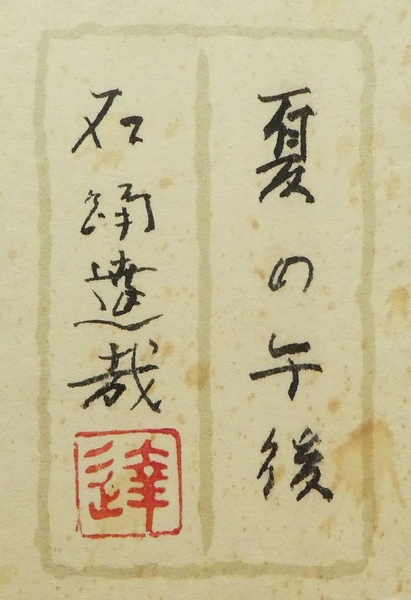 夏の午後
石踊達哉
達